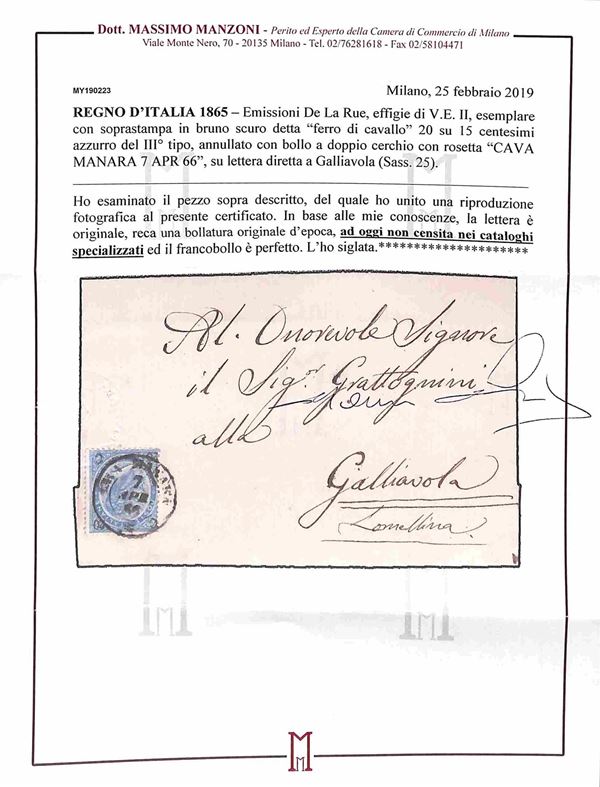 Dott. MASSIMO MANZONI - Perito ed Esperto della Camera di Commercio di Milano
Viale Monte Nero, 70 - 20135 Milano - Tel. 02/76281618 - Fax 02/58104471
MY190223
Milano, 25 febbraio 2019
REGNO D'ITALIA 1865 – Emissioni De La Rue, effigie di V.E. II, esemplare
con soprastampa in bruno scuro detta “ferro di cavallo” 20 su 15 centesimi
azzurro del III° tipo, annullato con bollo a doppio cerchio con rosetta “CAVA
MANARA 7 APR 66”, su lettera diretta a Galliavola (Sass. 25).
Ho esaminato il pezzo sopra descritto, del quale ho unito una riproduzione
fotografica al presente certificato. In base alle mie conoscenze, la lettera è
originale, reca una bollatura originale d'epoca, ad oggi non censita nei cataloghi
specializzati ed il francobollo è perfetto. L'ho siglata.*********************
Al. Onorevole Signore
il Sigor Grattognini
alla
Galliavola
Lomellina
CAVA MANARA
7
APR
66
M